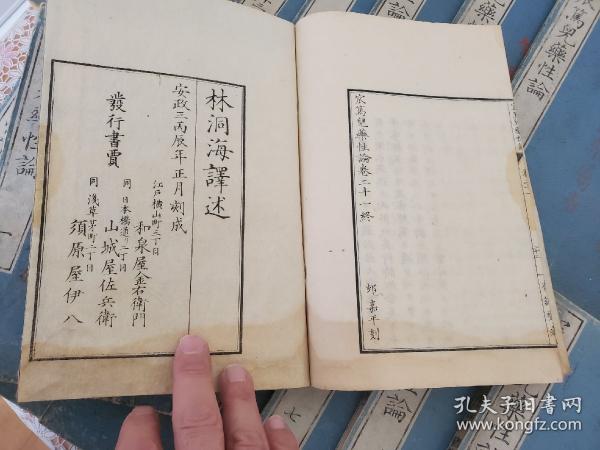 窊篤兒藥性論卷二十一終
邨嘉平刻
林洞海譯述
安政三丙辰年正月刻成
發行書賈
江戸橫山町三丁目
和泉屋金右衛門
同日本橋通二丁目
山城屋佐兵衛
同淺草茅町二丁目
須原屋伊八
篤兒藥性論
藥性論
性論
七
孔夫子旧書网